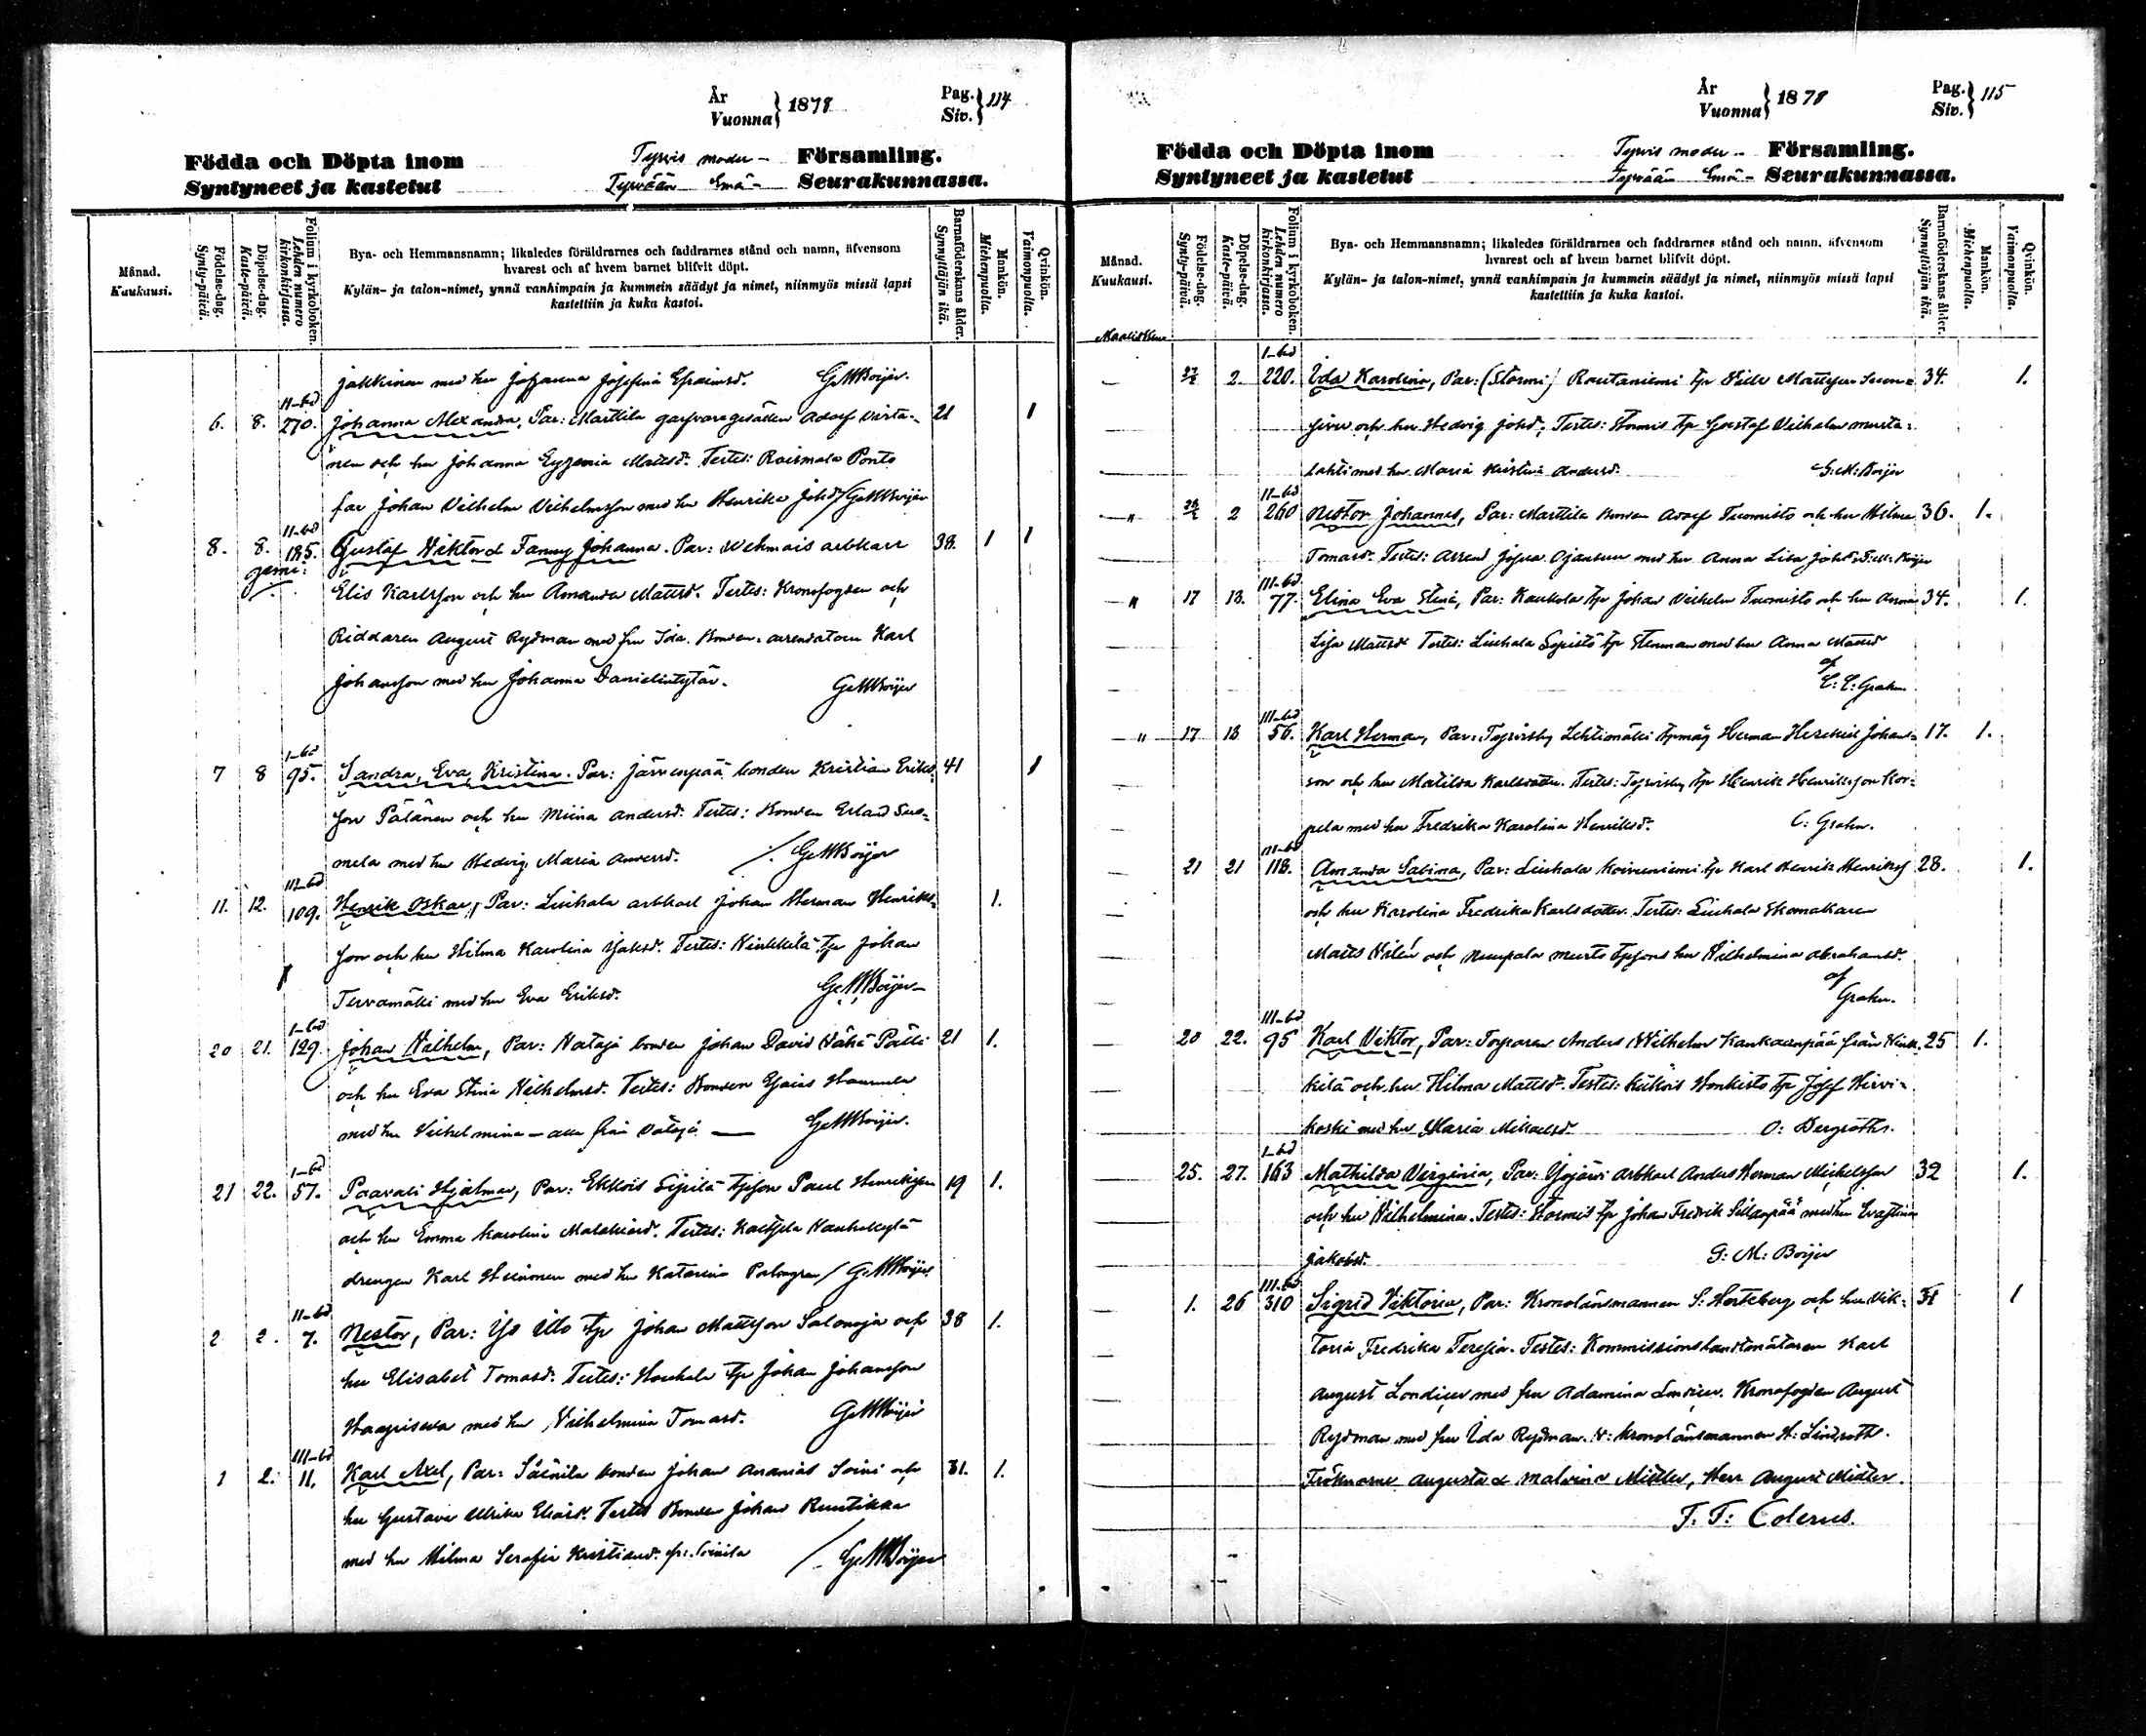 År
Vuonna } 1878
Pag.
Siv. } 114
Födda och Döpta inom Tyrvis moder- Församling.
Syntyneet ja kastetut Tyrvään Emä- Seurakunnassa.
Månad.
Kuukausi.
Födelse-dag.
Synty-päivä.
Döpelse-dag.
Kaste-päivä.
Folium i kyrkoboken.
Lehden numero kirkonkirjassa.
Bya- och Hemmansnamn; likaledes föräldrarnes och faddrarnes stånd och namn, äfvensom
hvarest och af hvem barnet blifvit döpt.
Kylän- ja talon-nimet, ynnä vanhimpain ja kummein säädyt ja nimet, niinmyös missä lapsi
kastettiin ja kuka kastoi.
Barnaföderskans ålder.
Synnyttäjän ikä.
Mankön.
Miehenpuolta.
Qvinkön.
Vaimonpuolta.
med hu Josefina Efraimsd. G:M:Boijer.
6. 8. II-bd 270. Johanna Alexandra, Par: Marttila garfvaregesällen Adolf Virta- 21 1
nen och hu Johanna Eugenia Mattsd. Testes: Roismala Ponto
far Johan Vilhelm Vilhelmsson med hu Henrika Johd. / G:M:Boijer
8. 8. II-bd 185. Gustaf Viktor & Fanny Johanna. Par: Vehmais arbkarl 38. 1 1
gemi:
Elis Karlsson och hu Amanda Mattsd. Testes: Kronofogden och
Riddaren August Rydman med fru Ida. Bonden: arrendatorn Karl
Johansson med hu Johanna Danielintytär. G:M:Boijer
7 8 I-bd 95. Sandra, Eva, Kristina. Par: Järvenpää bonden Kristian Eriks- 41 1
son Pälänen och hu Miina Andersd. Testes: Bonden Erland Suo-
mela med hu Hedvig Maria Andersd. /. G:M:Boijer
11. 12. III-bd 109. Henrik Oskar, Par: Liuhala arbkarl Johan Herman Henriks- 1.
son och hu Hilma Karolina Isaksd. Testes: Kinkkilä tpr Johan
Tervamäki med hu Eva Eriksd. G:M:Boijer-
20 21. I-bd 129. Johan Vilhelm, Par: Nataja bonden Johan David Vähä Pälli 21 1.
och hu Eva Stina Vilhelmsd. Testes: Bonden Esaias
med hu Vilhelmina — alla från — G:M:Boijer.
21 22. I-bd 57. Paavali Hjalmar, Par: Ekkois Sipilä tpson Paul Henriksson 19 1.
och hu Emma Karolina Malakiasd. Testes:
drengen Karl Heinonen med hu Katarina / G:M:Boijer.
2 2. II-bd 7. Nestor, Par: Illo tpr Johan Mattsson Salonoja och 38 1.
hu Elisabet Tomasd. Testes: Houhala tpr Johan Johansson
Haapiseva med hu Vilhelmina Tomasd. G:M:Boijer
1 2. III-bd 11. Karl Axel, Par: Säinilä bonden Johan Ananias Soini och 31. 1.
hu Gustava Ulrika Eliasd. Testes Bonden Johan Runtikka
med hu Hilma Serafia Kristiansd. / G:M:Boijer
År
Vuonna } 1878
Pag.
Siv. } 115
Födda och Döpta inom Tyrvis moder- Församling.
Syntyneet ja kastetut Tyrvään Emä- Seurakunnassa.
Månad.
Kuukausi.
Födelse-dag.
Synty-päivä.
Döpelse-dag.
Kaste-päivä.
Folium i kyrkoboken.
Lehden numero kirkonkirjassa.
Bya- och Hemmansnamn; likaledes föräldrarnes och faddrarnes stånd och namn, äfvensom
hvarest och af hvem barnet blifvit döpt.
Kylän- ja talon-nimet, ynnä vanhimpain ja kummein säädyt ja nimet, niinmyös missä lapsi
kastettiin ja kuka kastoi.
Barnaföderskans ålder.
Synnyttäjän ikä.
Mankön.
Miehenpuolta.
Qvinkön.
Vaimonpuolta.
27/2 2. I-bd 220. Ida Karolina, Par: (Stormi) Rautaniemi tpr Ville Mattsson 34. 1.
och hu Hedvig Johd. Testes: Stormis tpr Gustaf Vilhelm Musta-
lahti med hu Maria Kristina Andersd. G:M:Boijer
" 2 II-bd 260 Nestor Johannes, Par: Marttila bonden Adolf Tuomisto och hu Hilma 36. 1.
Tomasd. Testes: Arrend Josua Ojansuu med hu Anna Lisa Johd. G:M:Boijer
" 17 18. III-bd 77. Elina Eva Stina, Par: Kaukola tpr Johan Vilhelm Tuomisto och hu Anna 34. 1.
Lisa Mattsd Testes: Liuhala Sepistö tpr Stenman med hu Anna Mattsd
af
C: C: Grahn.
" 17 18 III-bd 56. Karl Herman, Par: Tyrvisby Lehtimäki tpmåg Herman Heskiel Johans- 17. 1.
son och hu Matilda Karlsdotter. Testes: Tyrvisby tpr Henrik Henriksson Kor-
pela med hu Fredrika Karolina Henriksd. C: Grahn.
21 21 III-bd 118. Amanda Sabina, Par: Liuhala Koivuniemi tpr Karl Henrik Henrikss 28. 1.
och hu Karolina Fredrika Karlsdotter. Testes: Liuhala Skomakaren
Matts Vilén och Nuupala tpsons hu Vilhelmina Abrahamsd.
af
Grahn.
20 22. III-bd 95 Karl Viktor, Par: Torparen Anders Vilhelm Kankaanpää från Kink- 25 1.
kilä och hu Hilma Mattsd. Testes: Kiikois Honkisto tpr Josef Hirvi-
koski med hu Maria Mikaelsd. O: Bergroth.
25. 27. I-bd 163 Mathilda Virginia, Par: arbkarl Anders Herman Michelsson 32 1.
och hu Vilhelmina. Testes: Stormis tpr Johan Fredrik Sillanpää med hu Evastina
Jakobsd. G: M: Boijer
1. 26 III-bd 310 Sigrid Viktoria, Par: Kronolänsmannen S: Hertzberg och hu Vik- 31 1
toria Fredrika Teresia. Testes: Kommissionslandtmätaren Karl
August Londicer med fru Adamina Londicer. Kronofogden August
Rydman med fru Ida Rydman. V: Kronolänsmannen H: Lindroth.
Fröknarne Augusta & Malvina Midler, Herr August Midler.
F. F: Colerus.